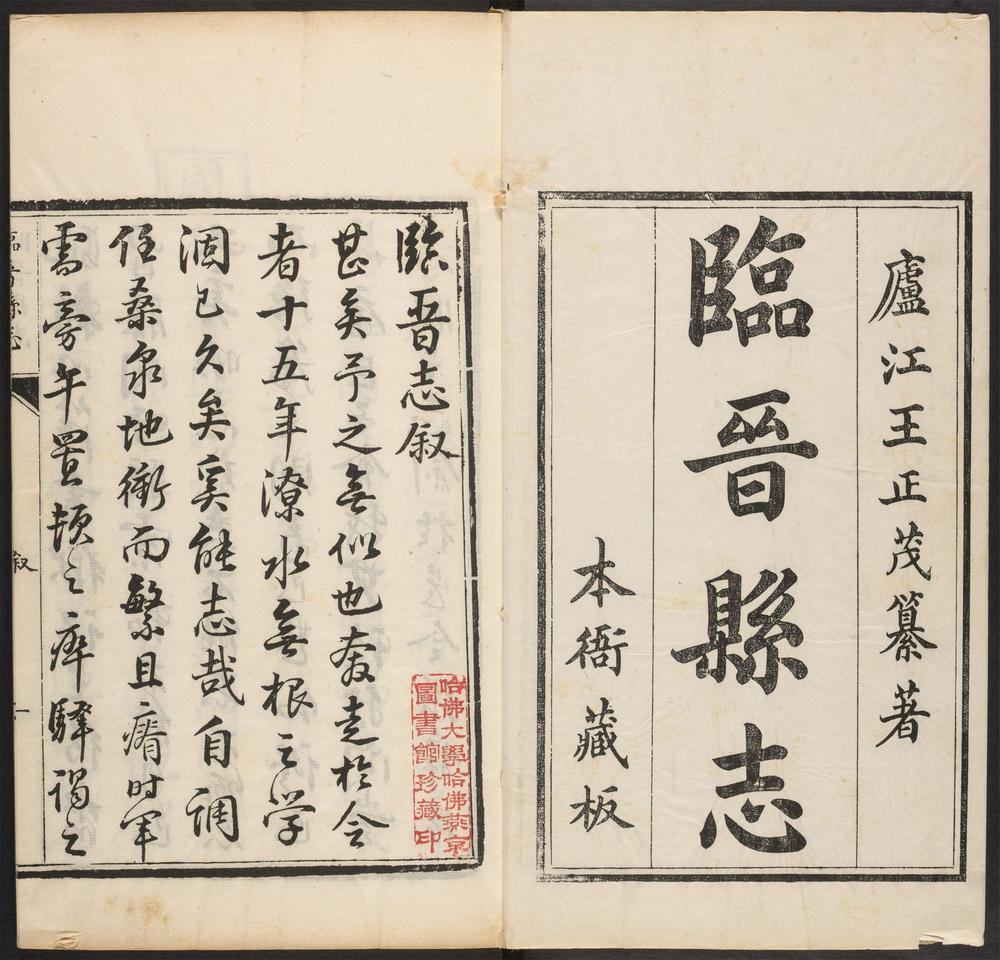 廬江王正茂纂著
臨晉縣志
本衙藏板
臨晋志叙
甚矣予之無似也奔走於令
者十五年潦水無根之学
涸已久矣奚能志哉自調
任桑泉地衝而繁且瘠时军
需旁午置頓之瘁驛謁之
臨晋縣志
叙
一
哈佛大學哈佛燕京
圖書館珍藏印